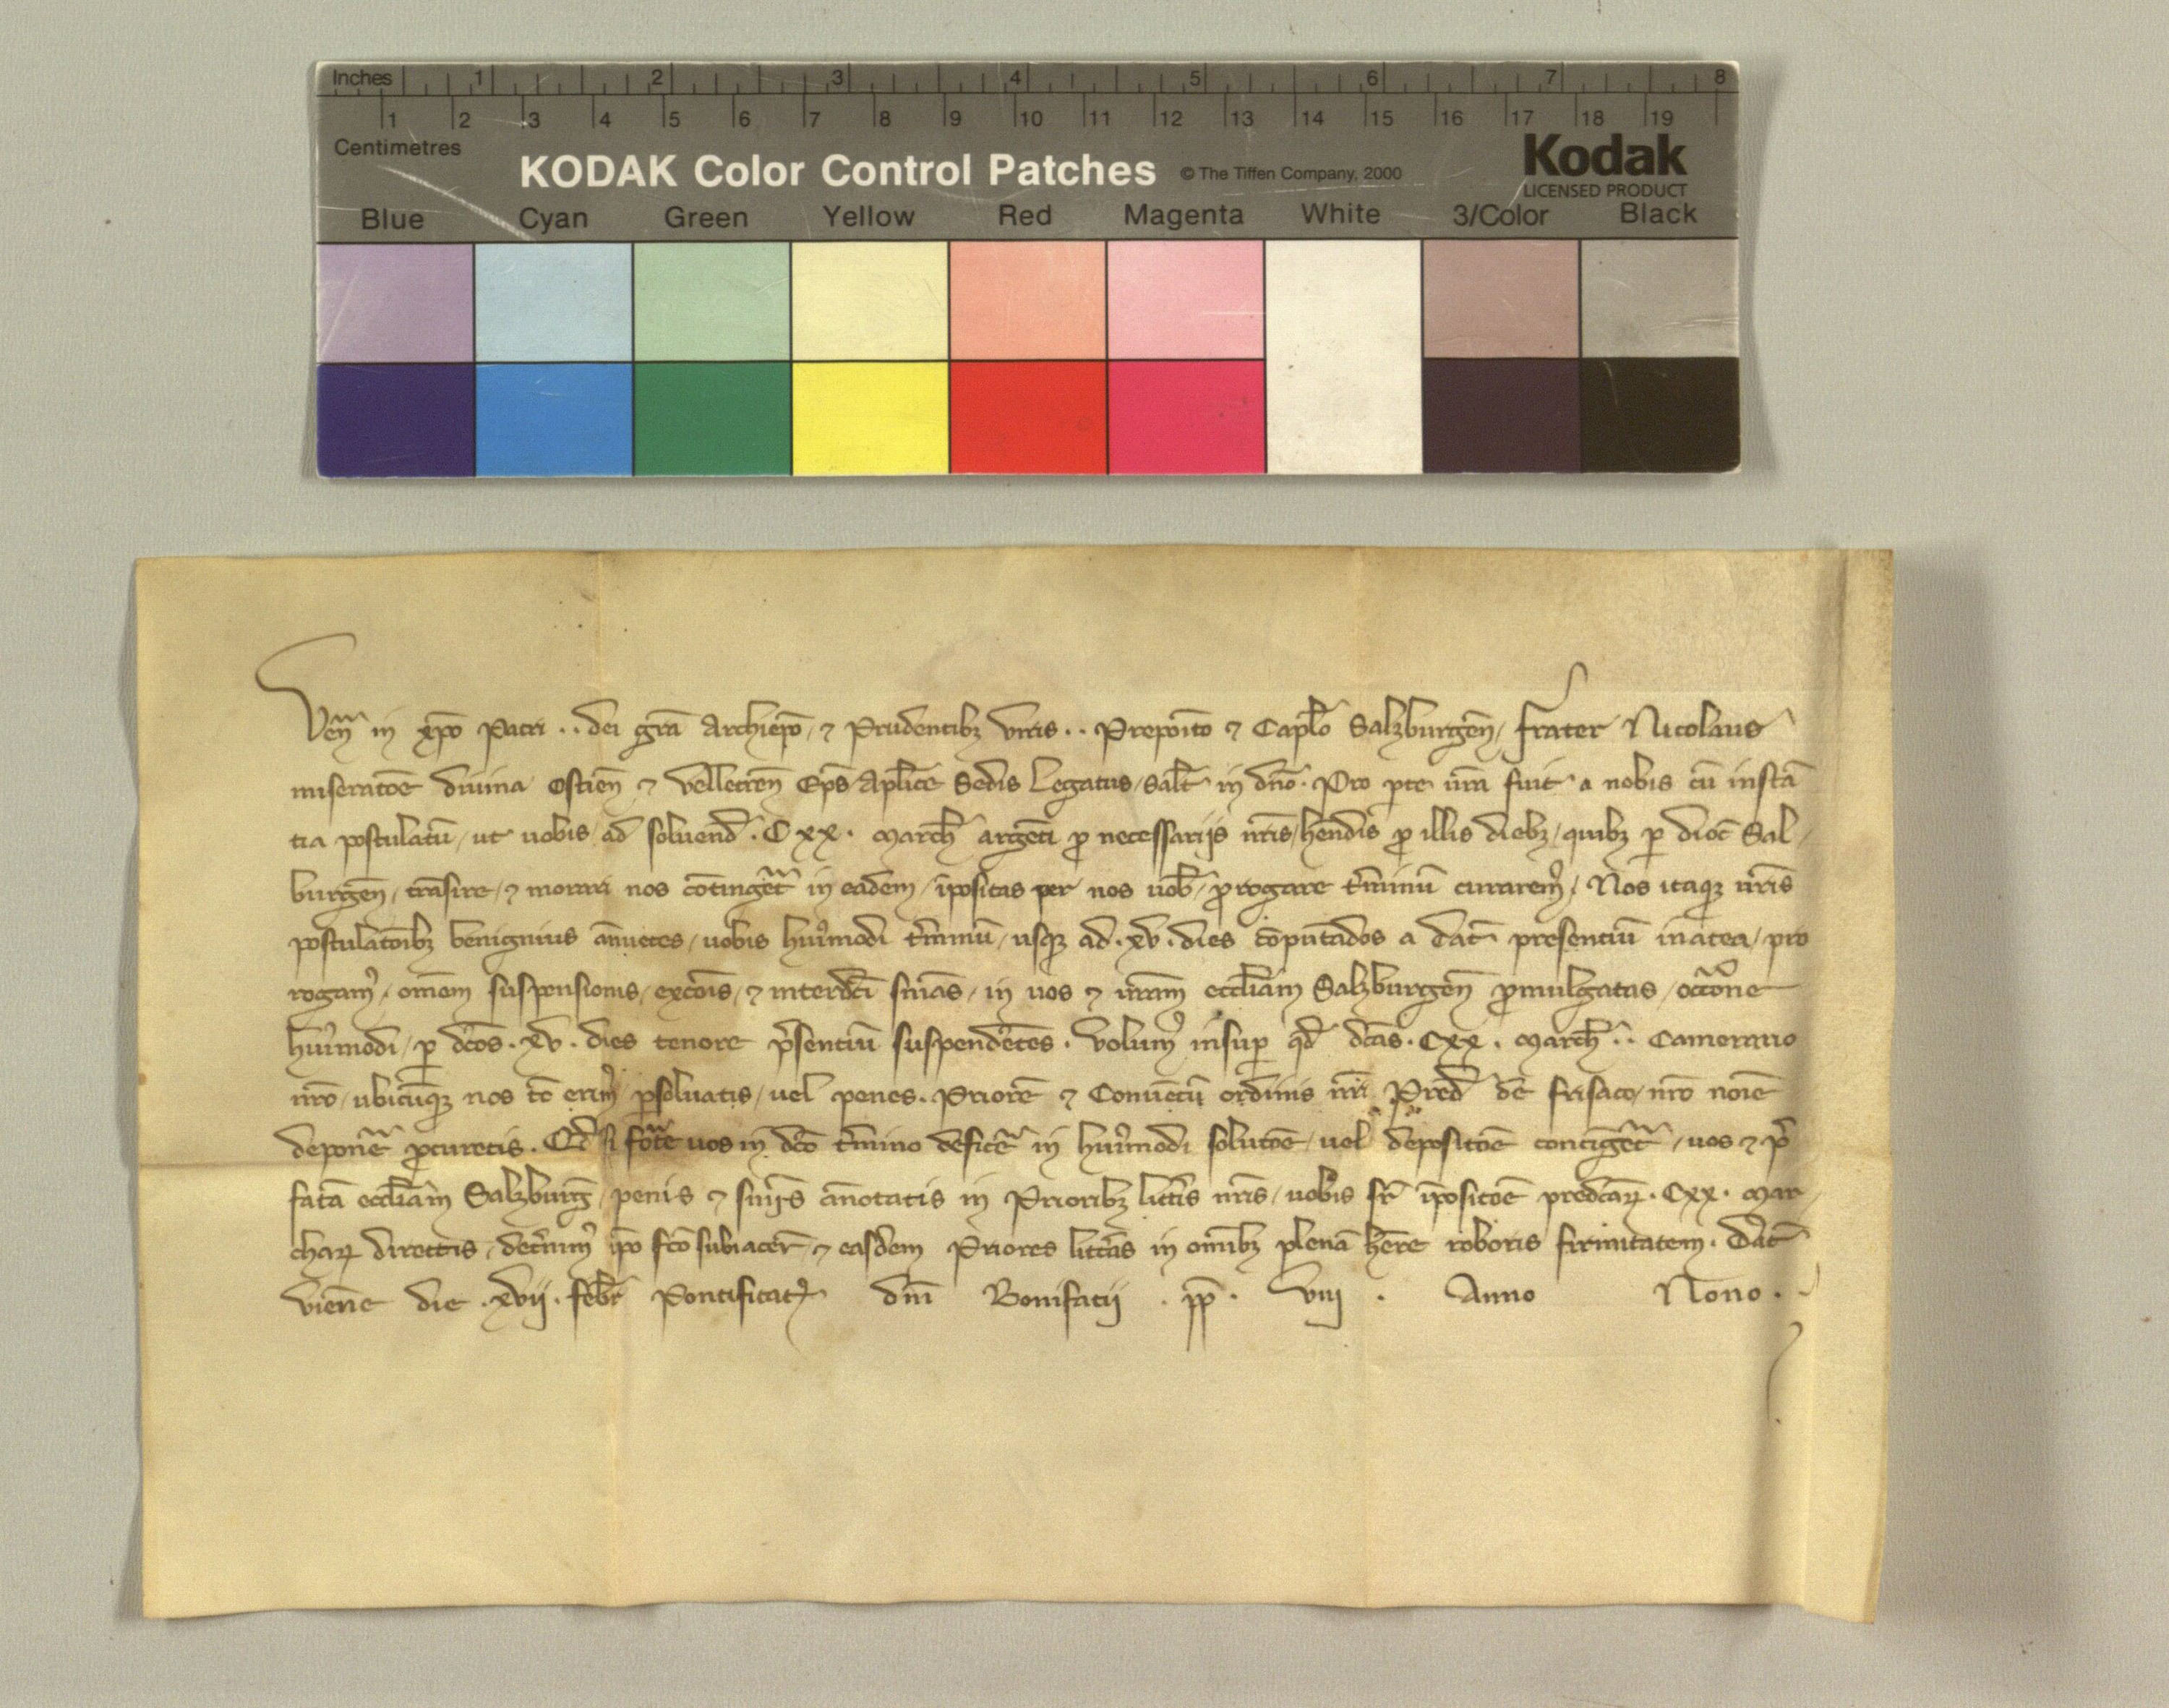 Inches 1 2 3 4 5 6 7 8
1 2 3 4 5 6 7 8 9 10 11 12 13 14 15 16 17 18 19
Centimetres
KODAK Color Control Patches © The Tiffen Company, 2000 Kodak
LICENSED PRODUCT
Blue Cyan Green Yellow Red Magenta White 3/Color Black
Ven̄ in xp̄o Patri .. dei gr̄a Archiep̄o, ⁊ Prudentibꝫ viris .. Preposito ⁊ Capl̄o Salzburgen̄, frater Nicolaus
miserato͞e diuina Ostien̄ ⁊ Velletren̄ Ep̄s Apl̄ice Sedis Legatus, Salt̄ in dn̄o. Pro ꝑte ur̄a fuit a nobis cū instā
tia postulatū, ut uobis ad soluend̄ . Cxx . March̄ argēti ꝓ necessarijs nr̄is, hēndis ꝓ illis diebꝫ, quibꝫ ꝑ dioc̄ Sal
burgen̄, trāsire, ⁊ morari nos cōtinget̄ in eadem, īpositas per nos uob̄, ꝓrogare t̄minū curarem᷒, Nos itaqꝫ ur̄is
postulatōibꝫ benignius ānuētes, uobis hui᷒modi t̄minū, usqꝫ ad . xv . dies cōputādos a dat̄ presentiū inātea, pro
rogam᷒, om̄em suspensionis, exc̄ois, ⁊ interdc̄i sn̄ias, in uos ⁊ ur̄am eccl̄iam Salzburgen̄ ꝓmulgatas, occ̄one
hui᷒modi, ꝑ dc̄os . xv . dies tenore p̄sentiū suspendētes . Volum᷒ insuꝑ qd̄ dc̄as . Cxx . March̄ .. Camerario
nr̄o, ubicūqꝫ nos tc̄ erim᷒ ꝑsoluatis, uel penes . Priorē ⁊ Conuētū ordinis nr̄i Pred̄ de frisaco, nr̄o noi͞e
deponer̄ ꝓcuretis . Qd̄ si fort̄e uos in dc̄o t̄mino deficer̄ in hui᷒modi soluto͞e, uel deposito͞e contīget̄, uos ⁊ p̄
fatā eccl̄iam Salzburg̃, penis ⁊ sn̄iis ānotatis in Prioribꝫ litt̄is nr̄is, uobis sr̄ īposito͞e predc̄aꝝ . Cxx . Mar
chaꝝ directis, det̄nim᷒ ip̄o fc̄o subiacer̄, ⁊ easdem Priores litt̄as in om̄ibꝫ plenā hēre roboris firmitatem . Dat̄
Vienne die . xvij . febr̄ Pontificat᷒ dn̄i Bonifatij . pp̄ . viij . Anno Nono .